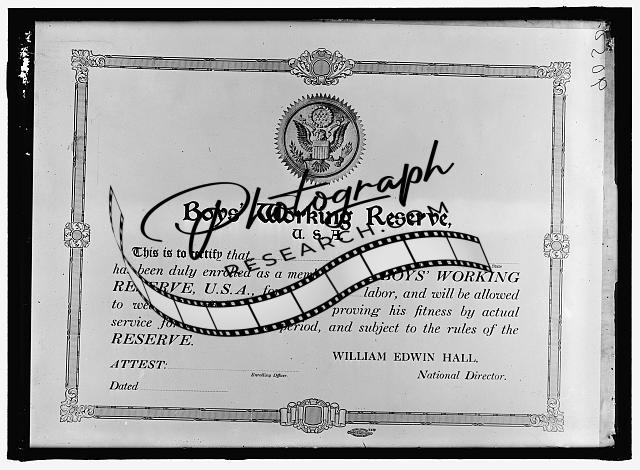 Boys' Working Reserve,
U. S. A.
Photograph
RESEARCH.COM
This is to certify that
State
has been duly enrolled as a BOYS' WORKING
RESERVE, U.S.A., labor, and will be allowed
to proving his fitness by actual
service period, and subject to the rules of the
RESERVE.
WILLIAM EDWIN HALL,
ATTEST:
Enrolling Officer.
National Director.
Dated